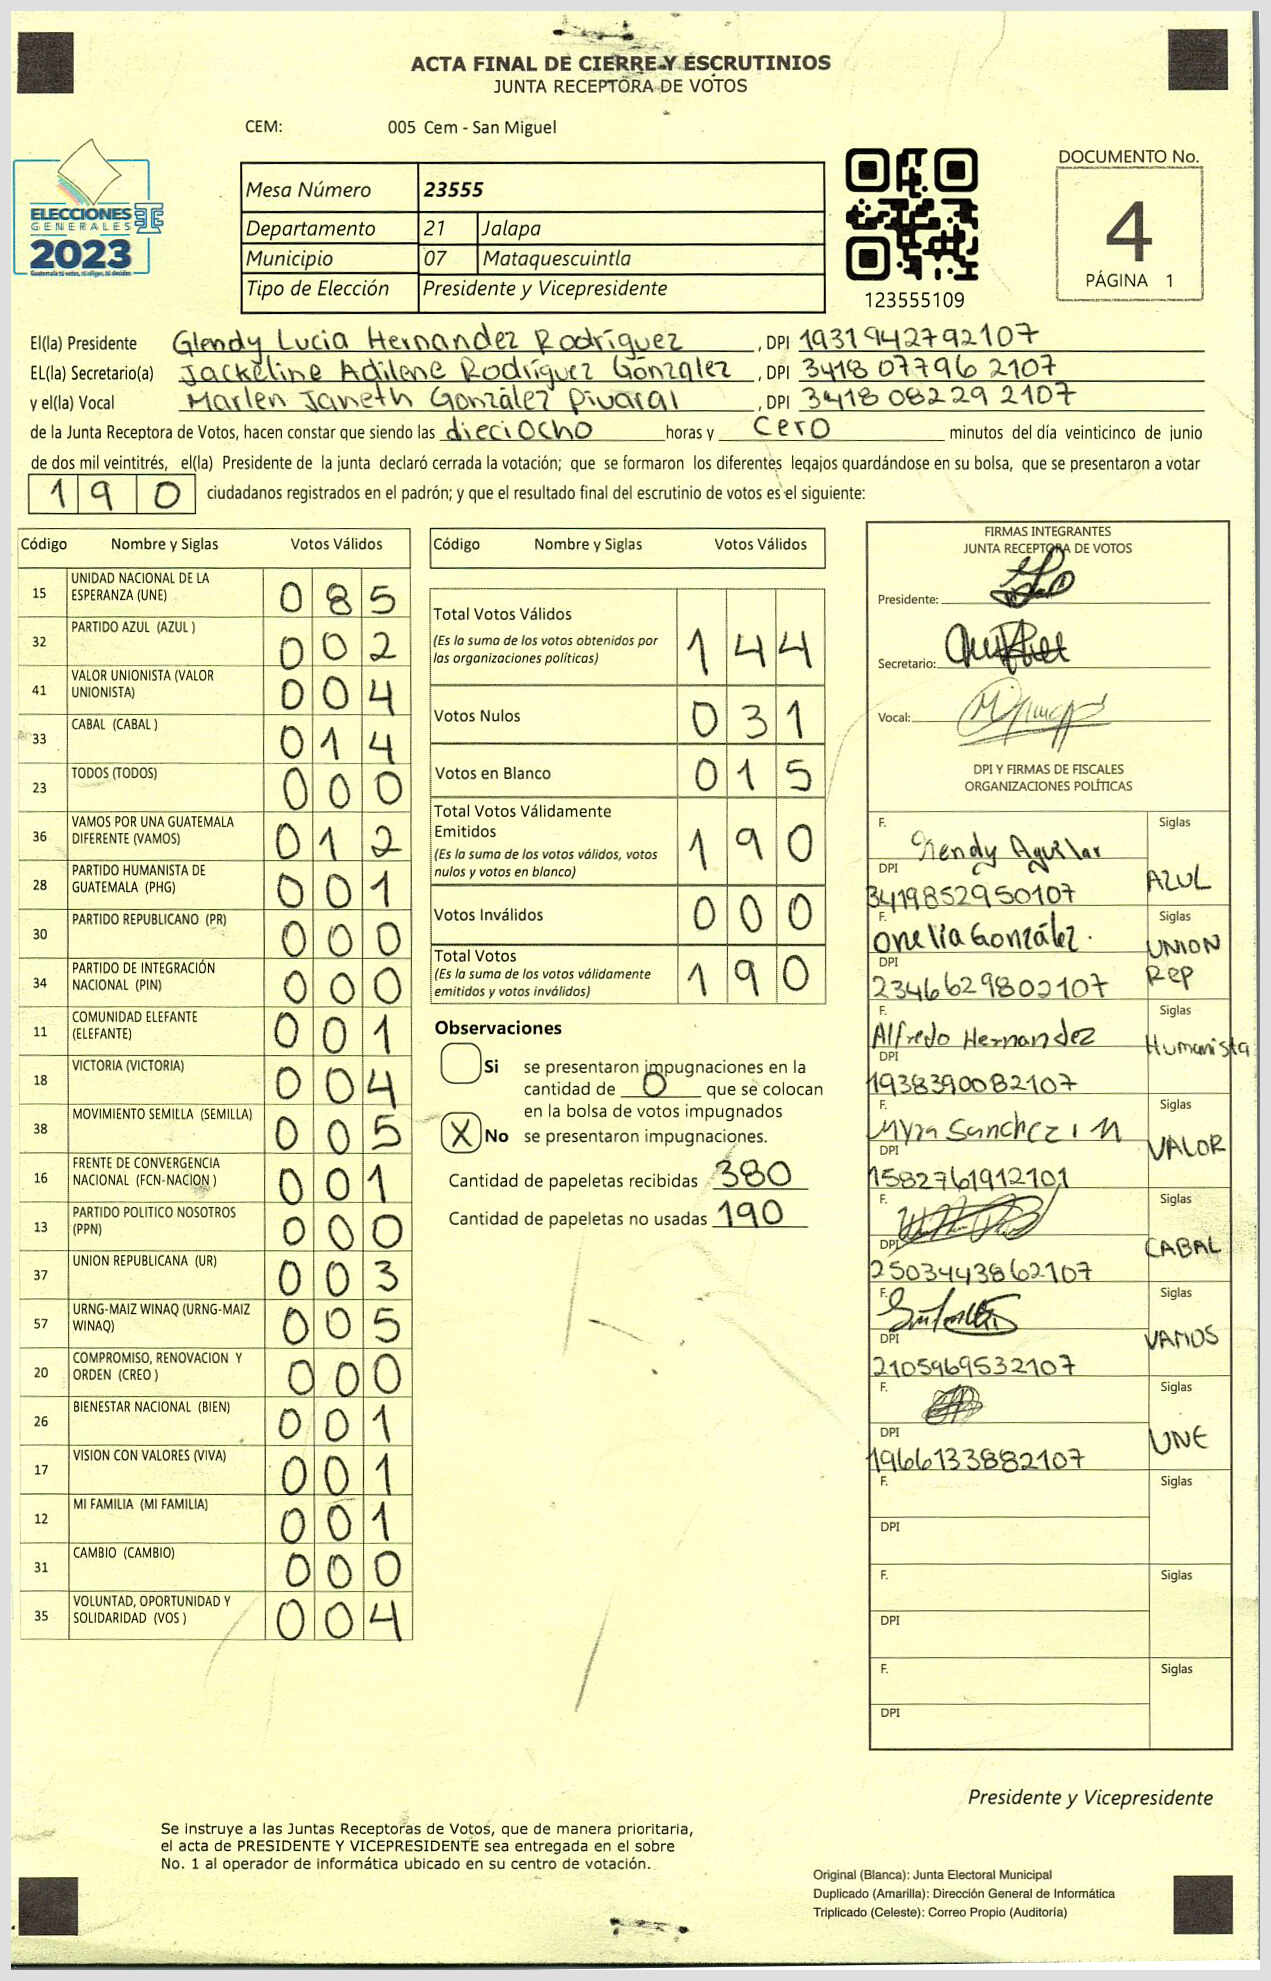 ACTA FINAL DE CIERRE Y ESCRUTINIOS
JUNTA RECEPTORA DE VOTOS
CEM: 005 Cem - San Miguel
ELECCIONES
GENERALES
2023
Guatemala tú votas, tú eliges, tú decides
Mesa Número 23555
Departamento 21 Jalapa
Municipio 07 Mataquescuintla
Tipo de Elección Presidente y Vicepresidente
123555109
DOCUMENTO No.
4
PÁGINA 1
El(la) Presidente Glendy Lucia Hernandez Rodríguez , DPI 1931942792107
EL(la) Secretario(a) Jackeline Adilene Rodríguez González , DPI 3418 07796 2107
y el(la) Vocal Marlen Janeth González Pivaral , DPI 3418 08229 2107
de la Junta Receptora de Votos, hacen constar que siendo las dieciocho horas y cero minutos del día veinticinco de junio
de dos mil veintitrés, el(la) Presidente de la junta declaró cerrada la votación; que se formaron los diferentes legajos guardándose en su bolsa, que se presentaron a votar
190 ciudadanos registrados en el padrón; y que el resultado final del escrutinio de votos es el siguiente:
Código Nombre y Siglas Votos Válidos
15 UNIDAD NACIONAL DE LA ESPERANZA (UNE) 085
32 PARTIDO AZUL (AZUL ) 002
41 VALOR UNIONISTA (VALOR UNIONISTA) 004
33 CABAL (CABAL ) 014
23 TODOS (TODOS) 000
36 VAMOS POR UNA GUATEMALA DIFERENTE (VAMOS) 012
28 PARTIDO HUMANISTA DE GUATEMALA (PHG) 001
30 PARTIDO REPUBLICANO (PR) 000
34 PARTIDO DE INTEGRACIÓN NACIONAL (PIN) 000
11 COMUNIDAD ELEFANTE (ELEFANTE) 001
18 VICTORIA (VICTORIA) 004
38 MOVIMIENTO SEMILLA (SEMILLA) 005
16 FRENTE DE CONVERGENCIA NACIONAL (FCN-NACION ) 001
13 PARTIDO POLITICO NOSOTROS (PPN) 000
37 UNION REPUBLICANA (UR) 003
57 URNG-MAIZ WINAQ (URNG-MAIZ WINAQ) 005
20 COMPROMISO, RENOVACION Y ORDEN (CREO ) 000
26 BIENESTAR NACIONAL (BIEN) 001
17 VISION CON VALORES (VIVA) 001
12 MI FAMILIA (MI FAMILIA) 001
31 CAMBIO (CAMBIO) 000
35 VOLUNTAD, OPORTUNIDAD Y SOLIDARIDAD (VOS ) 004
Código Nombre y Siglas Votos Válidos
Total Votos Válidos 144
(Es la suma de los votos obtenidos por
las organizaciones políticas)
Votos Nulos 031
Votos en Blanco 015
Total Votos Válidamente
Emitidos 190
(Es la suma de los votos válidos, votos
nulos y votos en blanco)
Votos Inválidos 000
Total Votos 190
(Es la suma de los votos válidamente
emitidos y votos inválidos)
Observaciones
Si se presentaron impugnaciones en la
cantidad de 0 que se colocan
en la bolsa de votos impugnados
X No se presentaron impugnaciones.
Cantidad de papeletas recibidas 380
Cantidad de papeletas no usadas 190
FIRMAS INTEGRANTES
JUNTA RECEPTORA DE VOTOS
Presidente:
Secretario:
Vocal:
DPI Y FIRMAS DE FISCALES
ORGANIZACIONES POLÍTICAS
F. Aguilar Siglas
DPI AZUL
3419852950107
F. Onelia González. Siglas
DPI UNION
2346629802107 Rep
F. Alfredo Hernandez Siglas
DPI Humanista
1938390082107
F. Sanchez Siglas
DPI VALOR
1582761912101
F. Siglas
DPI CABAL
2503443862107
F. Siglas
DPI VAMOS
2105969532107
F. Siglas
DPI UNE
1966133882107
F. Siglas
DPI
F. Siglas
DPI
F. Siglas
DPI
Presidente y Vicepresidente
Se instruye a las Juntas Receptoras de Votos, que de manera prioritaria,
el acta de PRESIDENTE Y VICEPRESIDENTE sea entregada en el sobre
No. 1 al operador de informática ubicado en su centro de votación.
Original (Blanca): Junta Electoral Municipal
Duplicado (Amarilla): Dirección General de Informática
Triplicado (Celeste): Correo Propio (Auditoría)